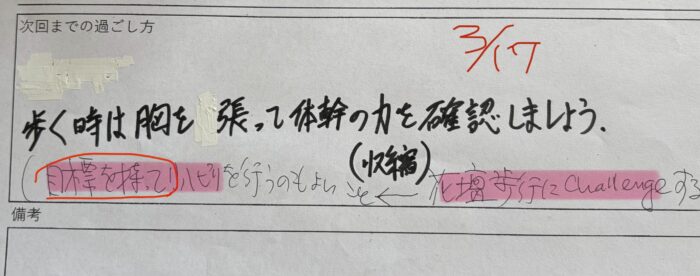 次回までの過ごし方
3/17
歩く時は胸を張って体幹の力を確認しましょう.
(収縮)
(目標を持ってリハビリを行うのもよい ← 花壇歩行にchallengeする
備考